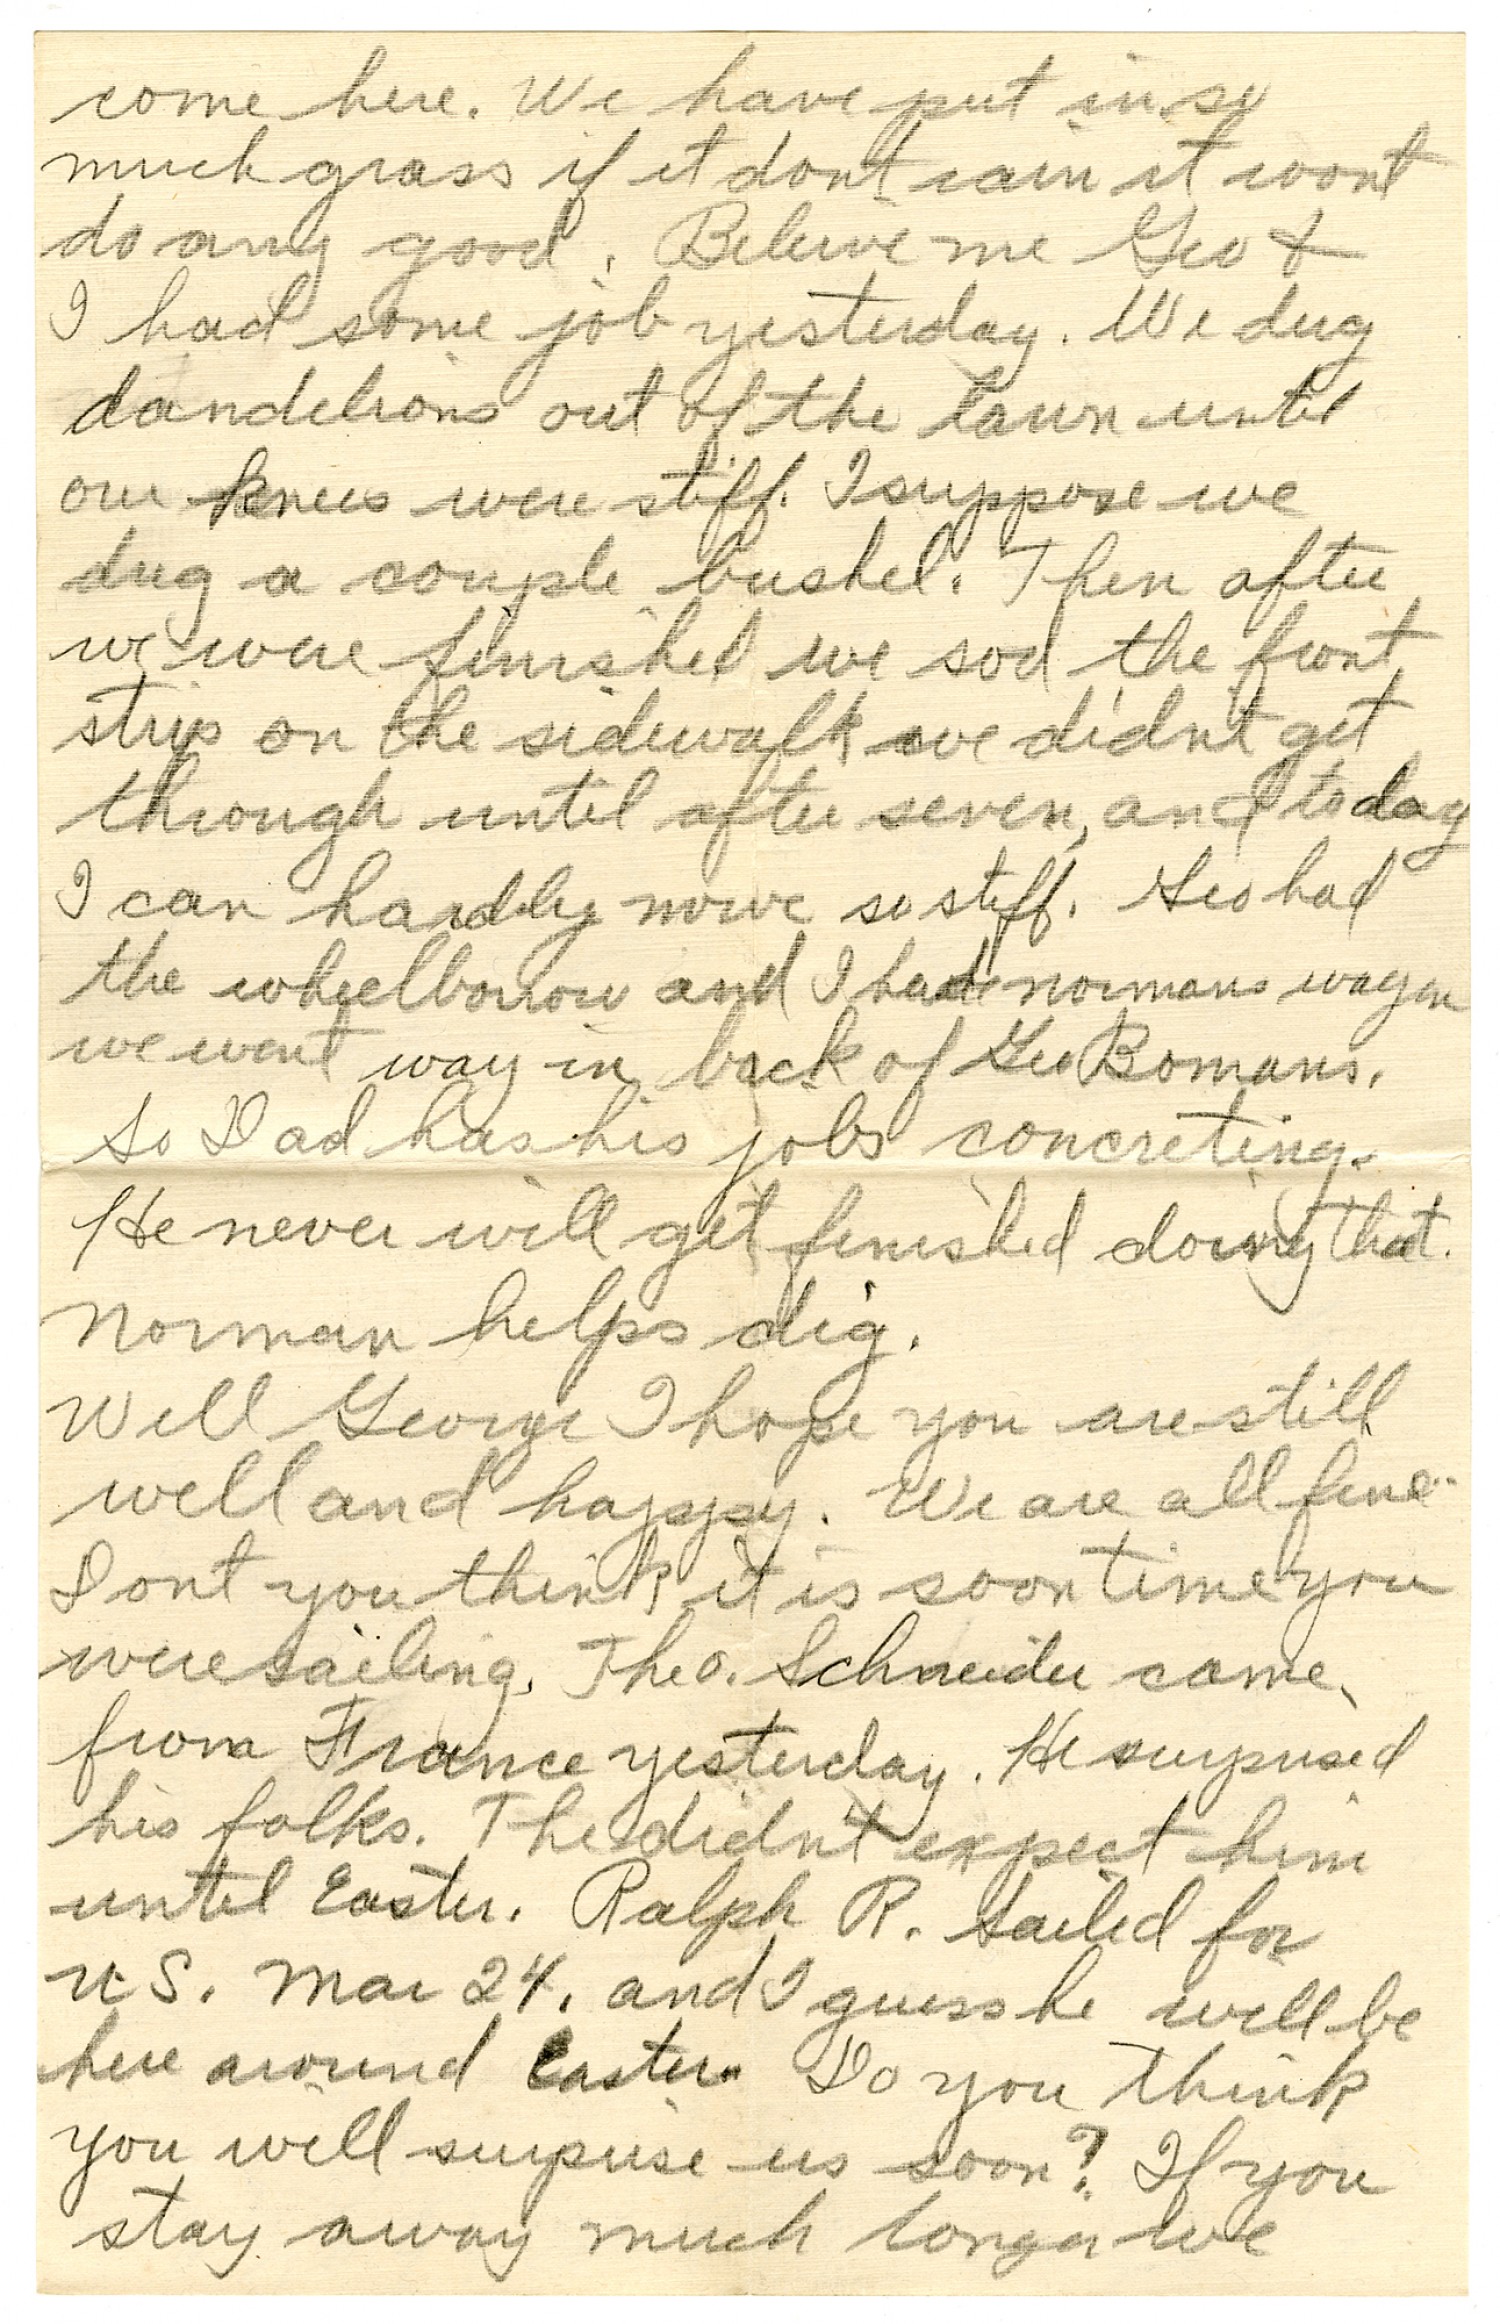 come here. We have put in so
much grass if it dont rain it wont
do any good. Beleive me Geo &
I had some job yesterday. We dug
dandelions out of the lawn until
our knees were stiff. I suppose we
dug a couple bushel. Then after
we were finished we sod the front
strip on the sidewalk we didn't get
through until after seven, and today
I can hardly move so stiff. Geo had
the wheelborrow and I had normans wagon
we went way in back of Geo Bomans.
So Dad has his jobs concreting.
He never will get finished doing that.
Norman helps dig.
Well George I hope you are still
well and happy. We are all fine
Dont you think it is soon time you
were sailing. Theo. Schneider came
from France yesterday. He surprised
his folks. The didn't expect him
until Easter. Ralph R. Sailed for
U.S. Mar 24. and I guess he will be
here around Easter. Do you think
you will surprise us soon? If you
stay away much longer we